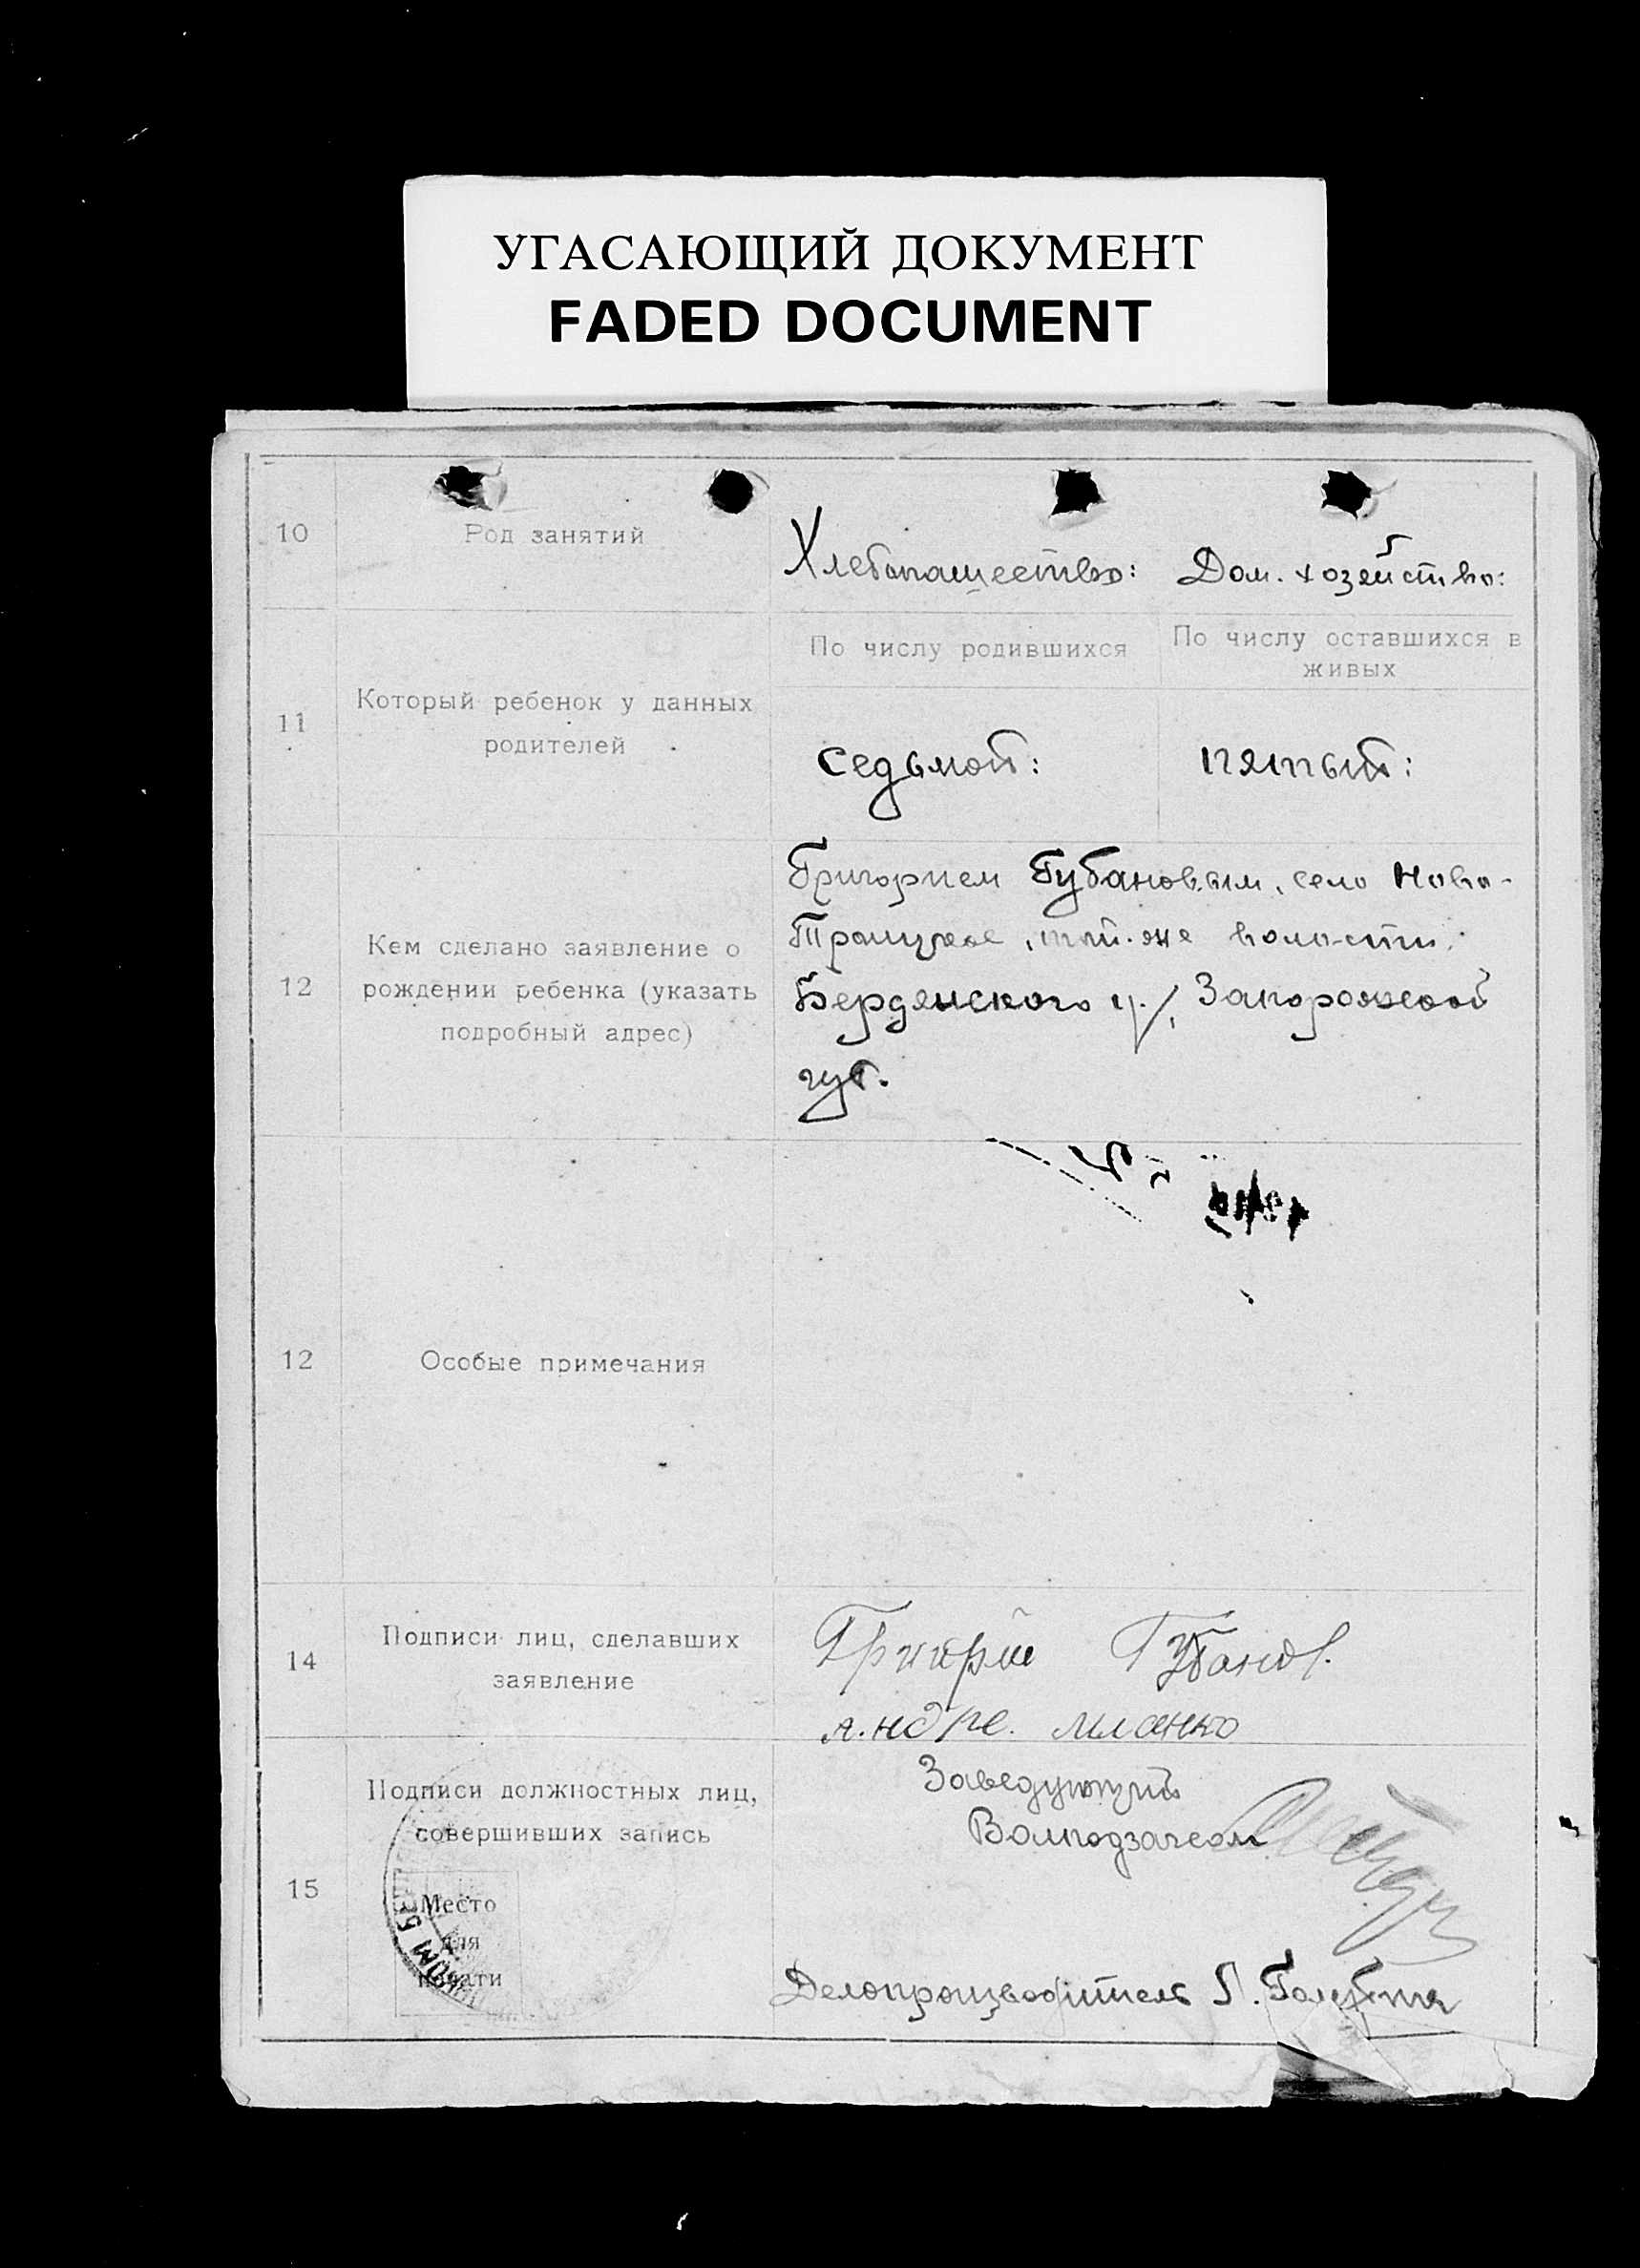 УГАСАЮЩИЙ ДОКУМЕНТ
FADED DOCUMENT
10
Род занятий
Хлебопашество:
Дом. хозяйство:
11
Который ребенок у данных
родителей
По числу родившихся
По числу оставшихся в
живых
седьмой:
пятый:
12
Кем сделано заявление о
рождении ребенка (указать
подробный адрес)
Григорием Губановым, село Ново-
Троицкое, той-же волости,
Бердянского у., Запорожской
губ.
12
Особые примечания
14
Подписи лиц, сделавших
заявление
Григорий Губанов.
15
Подписи должностных лиц,
совершивших запись
Место
для
печати
Заведующий
Волподзагсом
Делопроизводитель